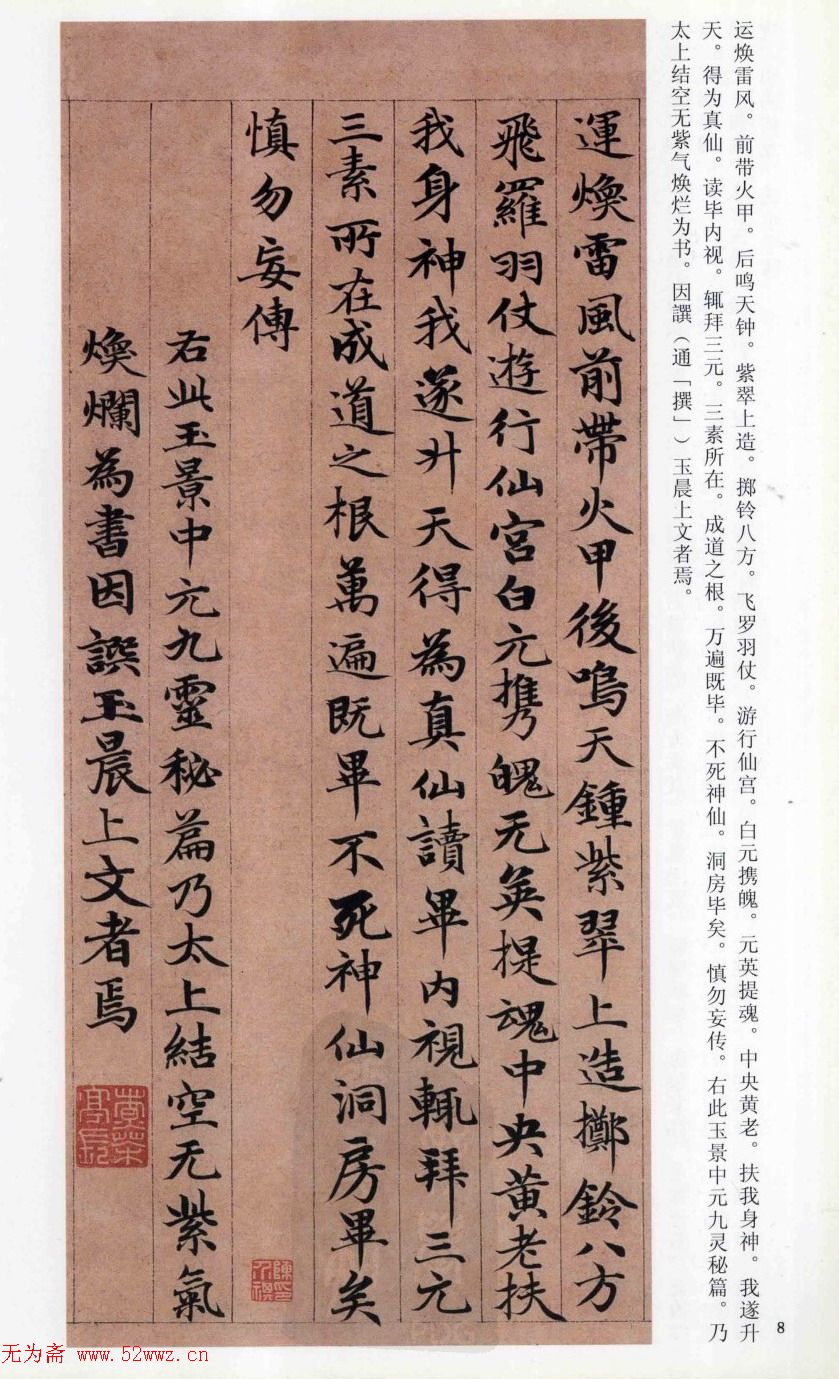 运焕雷风。前带火甲。后鸣天钟。紫翠上造。掷铃八方。飞罗羽仗。游行仙宫。白元携魄。元英提魂。中央黄老。扶我身神。我遂升
天。得为真仙。读毕内视。辄拜三元。三素所在。成道之根。万遍既毕。不死神仙。洞房毕矣。慎勿妄传。右此玉景中元九灵秘篇。乃
太上结空无紫气焕烂为书。因譔（通「撰」）玉晨上文者焉。
運煥雷風前帶火甲後鳴天鍾紫翠上造擲鈴八方
飛羅羽仗遊行仙宮白元攜魄无英提魂中央黃老扶
我身神我遂升天得為真仙讀畢內視輒拜三元
三素所在成道之根萬遍既畢不死神仙洞房畢矣
慎勿妄傳
右此玉景中元九靈秘篇乃太上結空无紫氣
煥爛為書因譔玉晨上文者焉
8
无为斋 www.52wwz.cn